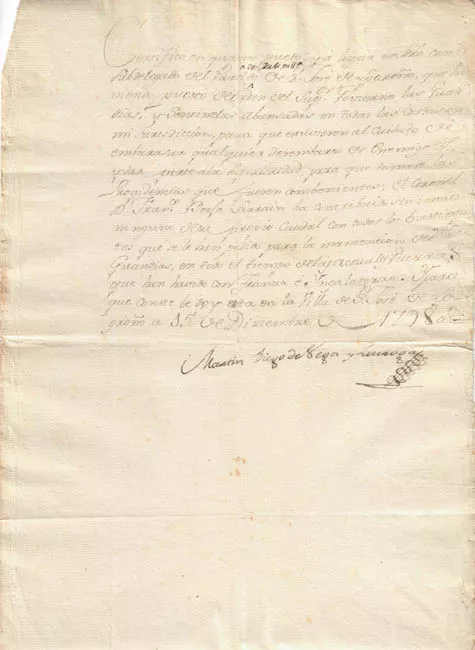 Certifico en quanto puedo y á lugar en dro como
Subdelegado del Partido de S. José de Logroño, que ha
viendo puesto de orden del Supr. Govierno las Guar
dias, y Centinelas abanzadas en todas las Costas de
mi Jurisdiccion, para que estuviesen al Cuidado de
embarazar qualquier desembarco de Enemigo
para que tomase las
Providencias que fuesen combenientes; el Coronel
Dn. Franco. Borja Larrain ha contribuido sin interes
ninguno de su propio Caudal con todos los bastimen
tos que se le han pedido para la manutencion de
Guardias, en todo el tiempo de las actuales Guerras
que han havido con Francia e YnGalaterra. Y para
que conste doy esta en la Villa de S. José de Lo
groño a 15 de Diciembre de 1798 a
Martin Diego de Vega y